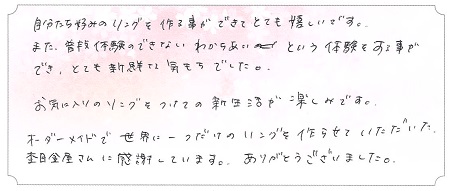 自分たち好みのリングを作る事ができてとても嬉しいです。
また、普段体験のできないわかちあいという体験をする事が
でき、とても新鮮な気もちでした。
お気に入りのリングをつけての新生活が楽しみです。
オーダーメイドで世界に一つだけのリングを作らせていただいた、
杢目金屋さんに感謝しています。ありがとうございました。